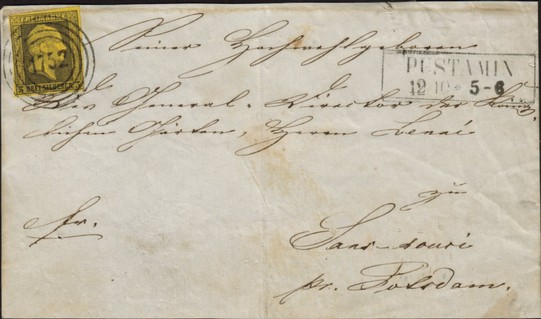 FREIMARKE
1757
3 SILBERGR.
PUSTAMIN
12 10 * 5-6
Seiner Hochwohlgeboren
Dem General-Director der König-
lichen Gärten, Herrn Lenné
zu
fr.
Sans-souci
pr. Potsdam.